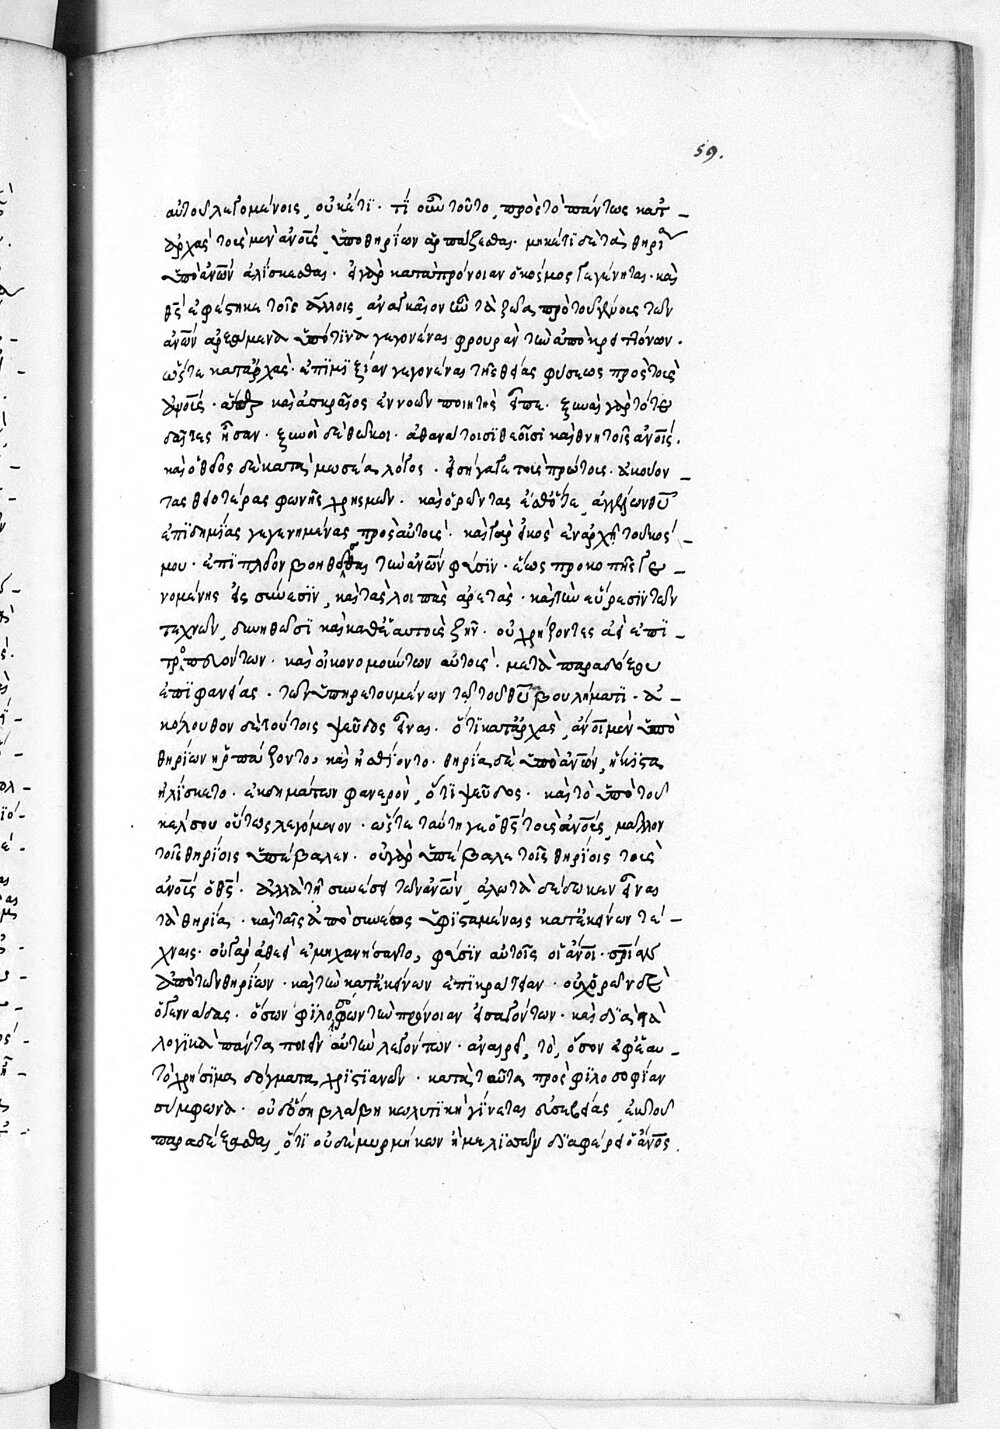 αὐτοῦ λεγομένοις, οὐκέτι. τί οὖν τοῦτο, πρὸς τὸ πάντως κατ᾽ –
ἀρχὰς τοὺς μὲν ἀνο̅υς, ὑπὸ θηρίων ἁρπάζεσθαι. μηκέτι δὲ τὰ θηρία
ὑπὸ ἀνω̅ν ἁλίσκεσθαι. εἰ γὰρ κατὰ πρόνοιαν ὁ κόσμος γεγένηται. καὶ
θς̅ ἐφέστηκε τοῖς ὅλοις, ἀναγκαῖον ἦν τὰ ζῶα πρὸ τοῦ γένους τῶν
ἀνω̅ν ἀρξάμενα ὑπό τινα γεγονέναι φρουρὰν τῶν ἀπὸ κρειττόνων.
ὥστε κατ᾽ ἀρχὰς ἐπιμιξίαν γεγονέναι τῆς θείας φύσεως πρὸς τοὺς
ἀνο̅υς. ἅπερ καὶ ἀσκραῖος ἐννοῶν ποιητὴς εἶπε. ξυναὶ γὰρ τότε
δαῖτες ἦσαν. ξυνοὶ δὲ θῶκοι. ἀθανάτοισι θεοῖσι καὶ θνητοῖς ἀνο̅ις.
καὶ ὁ θεῖος δὲ κατὰ μωσέα λόγος. εἰσήγαγε τοὺς πρώτους. ἀκούον
τας θειοτέρας φωνῆς χρησμῶν. καὶ ὁρῶντας ἐσθότε, ἀγγέλων θυ̅
ἐπιδημίας γεγενημένας πρὸς αὐτούς. καὶ γὰρ εἰκὸς ἐν ἀρχῇ τοῦ κόσ –
μου. ἐπιπλεῖον βοηθεῖσθαι τὴν ἀνω̅ν φύσιν. ἕως προκοπῆς γε –
νομένης εἰς σύνεσιν, καὶ τὰς λοιπὰς ἀρετάς. καὶ τὴν εὕρεσιν τῶν
τεχνῶν, δυνηθῶσι καὶ καθ᾽ ἑαυτοὺς ζῆν. οὐ χρήζοντες ἀεὶ ἐπι –
τροπευόντων. καὶ οἰκονομούντων αὐτούς. μετὰ παραδόξου
ἐπιφανείας. τῶν ὑπηρετουμένων τῶ τοῦ θυ̅ βουλήματι. ἀ –
κόλουθον δὲ τούτοις ψεῦδος εἶναι. ὅτι κατ᾽ ἀρχὰς, ἀνο̅ι μὲν ὑπὸ
θηρίων ἡρπάζοντο, καὶ ἠσθίοντο. θηρία δὲ ὑπὸ ἀνω̅ν, ἥκιστα
ἡλίσκετο. ἐκ δὴ τούτων φανερὸν, ὅτι ψεῦδος. καὶ τὸ ὑπὸ τοῦ
κέλσου οὕτως λεγόμενον. ὥστε ταύτη γε ὁ θς̅ τοὺς ἀνο̅υς, μᾶλλον
τοῖς θηρίοις ὑπέβαλεν. οὐ γὰρ ὑπέβαλε τοῖς θηρίοις τοὺς
ἀνο̅υς ὁ θς̅. ἀλλὰ τῆ συνέσει τῶν ἀνω̅ν, ἁλωτὰ δέδωκεν εἶναι
τὰ θηρία. καὶ ταῖς ἀπὸ συνέσεως ὑφισταμέναις κατ᾽ ἐκείνων τέ –
χναις. οὐ γὰρ ἀθεεὶ ἐμηχανήσαντο, φησὶν αὐτοῖς οἱ ἀνο̅ι. σρ̅ίαν
ἀπὸ τῶν θηρίων. καὶ τὴν κατ᾽ ἐκείνων ἐπικράτειαν. οὐχ ὁρῶν δὲ
ὁ γεννάδας. ὅσων φιλοσόφων τὴν πρόνοιαν εἰσαγόντων. καὶ διὰ τὰ
λογικὰ πάντα ποιεῖν αὐτὴν λεγόντων. ἀναιρεῖ, τὸ, ὅσον ἐφ᾽ ἑαυ –
τῶ χρήσιμα δόγματα χριστιανῶν. κατὰ ταῦτα πρὸς φιλοσοφίαν
σύμφωνα. οὐδ᾽ ὅση βλάβη κωλυτικὴ γίνεται εὐσεβείας, ἐκ τοῦ
παραδέξασθαι, ὅτι οὐδὲ μυρμήκων ἢ μελισσῶν διαφέρει ὁ ἀνο̅ς.